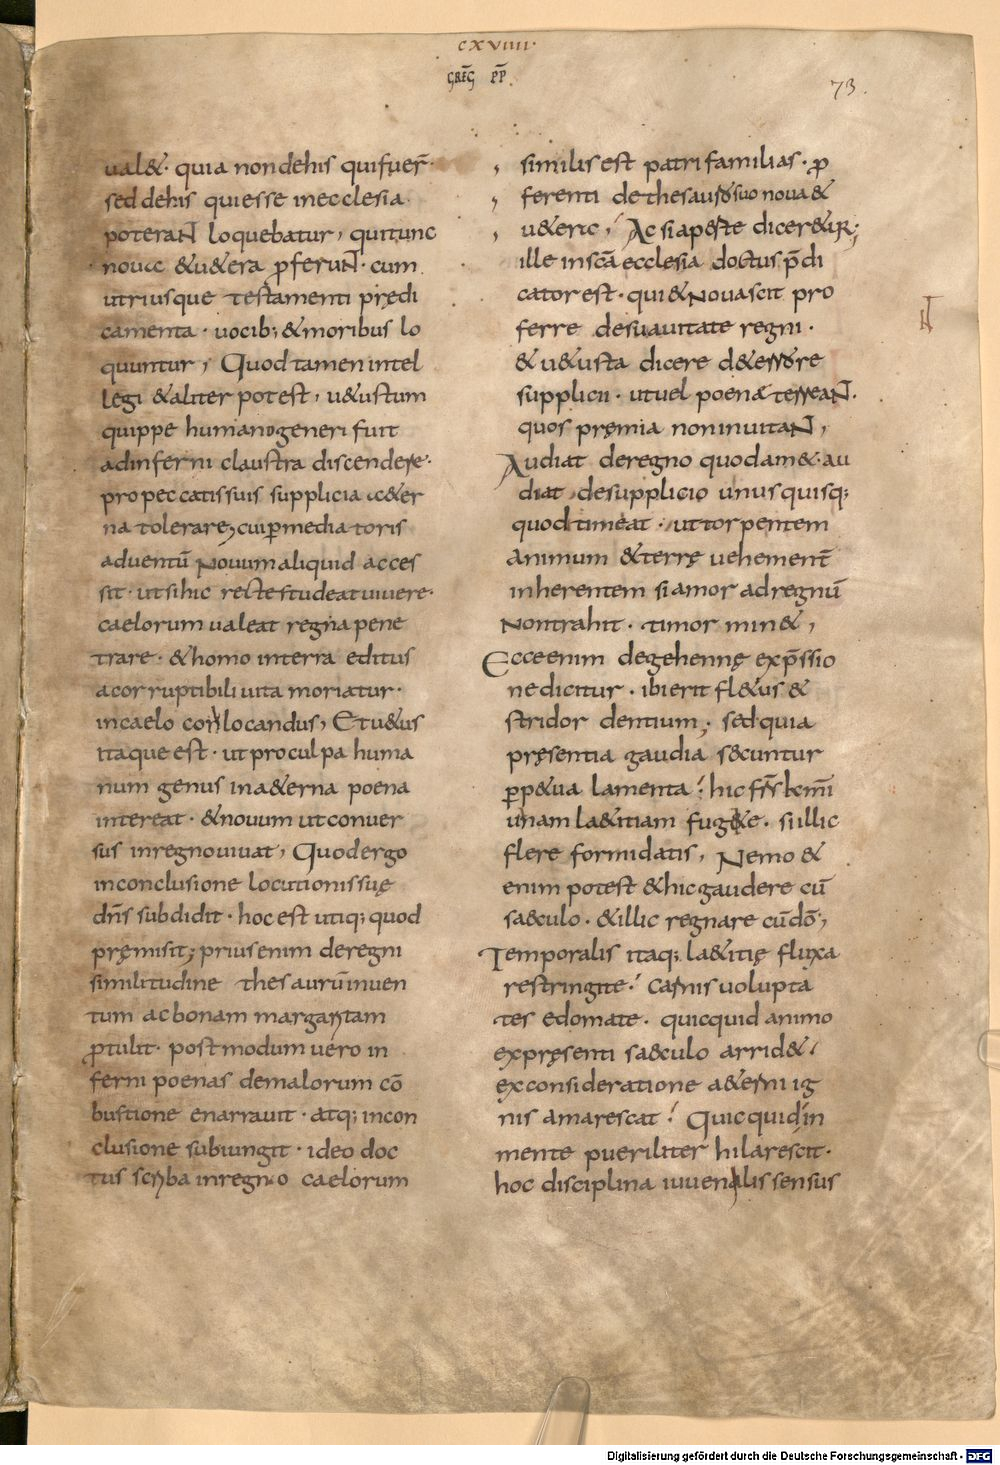 CXVIIII·
GREḠ P̄P̄
73.
ual&· quia nondehis quifuer̄·
sed dehis quiesse inecclesia·
poteraN̄ loquebatur, quitunc
noua &u&era ꝓferuN̄· cum
utriusque testamenti prędi
camenta· uocib; &moribus lo
quuntur, Quod tamen intel
legi &aliter potest, u&ustum
quippe humanogeneri fuit
adinferni claustra discendere·
propeccatissuis supplicia &er
na tolerare, cui ꝑmediatoris
aduentū Nouum aliquid acces
sit· utsihic recte studeat uiuere·
caelorum ualeat regna pene
trare· &homo interra editus
acorruptibili uita moriatur·
incaelo conlocandus, Et u&us
itaque est· ut pro culpa huma
num genus ina&erna poena
intereat· &nouum ut conuer
sus inregno uiuat, Quod ergo
inconclusione locutionis suę
dn̄s subdidit· hoc est utiq; quod
pręmisit; prius enim deregni
similitudine thesaurū inuen
tum ac bonam margaritam
ꝓtulit· post modum uero in
ferni poenas demalorum cō
bustione enarrauit· atq; incon
clusione subiungit· ideo doc
tus scriba inregno caelorum
, similis est patri familias· ꝓ
, ferenti dethesauro suo noua &
, u&era, Ac si aperte dicer&ur;
ille insc̄a ecclesia doctus p̄di
cator est· qui &Noua scit pro
ferre desuauitate regni·
& u&usta dicere d&errore
supplicii· ut uel poenæ terreaN̄·
quos pręmia non inuitaN̄,
Audiat deregno quod am&· au
diat desupplicio unusquisq;
quod timeat· ut torpentem
animum &terrę uehement̄
inherentem si amor ad regnū
Non trahit· timor min&,
Ecce enim degehennę exp̄ssio
ne dicitur· ibi erit fl&us &
stridor dentium; sed quia
pręsentia gaudia secuntur
ꝑp&ua lamenta
uanam la&itiam fugite· si illic
flere formidatis, Nemo &
enim potest &hic gaudere cū
saeculo· &illic regnare cū dō;,
Temporalis itaq; la&itię fluxa
restringite· carnis uolupta
tes edomate· quicquid animo
expręsenti saeculo arrid&·
exconsideratione a&erni ig
nis amarescat· Quicquid in
mente pueriliter hilarescit·
hoc disciplina iuuenilis sensus
Digitalisierung gefördert durch die Deutsche Forschungsgemeinschaft - DFG